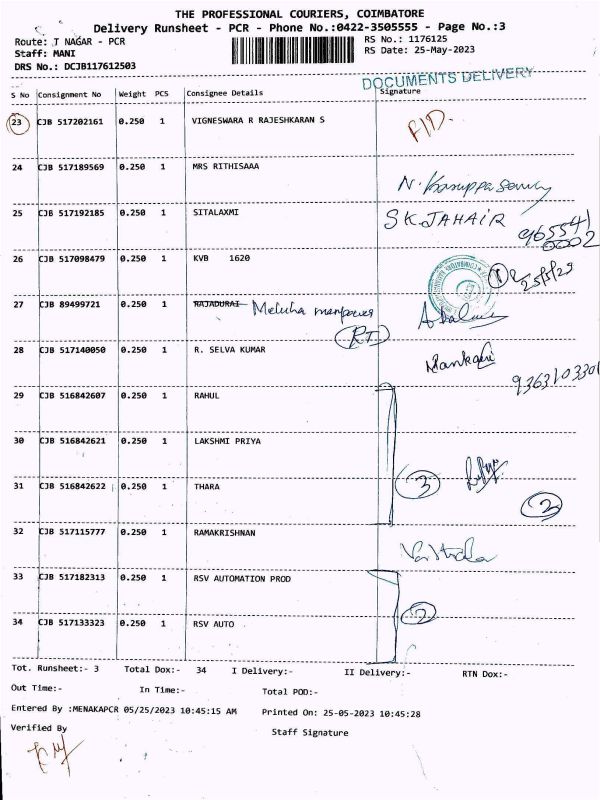 THE PROFESSIONAL COURIERS, COIMBATORE
Delivery Runsheet - PCR - Phone No.:0422-3505555 - Page No.:3
Route: T NAGAR - PCR
RS No.: 1176125
Staff: MANI
RS Date: 25-May-2023
DRS No.: DCJB117612503
DOCUMENTS DELIVERY
S No Consignment No Weight PCS Consignee Details Signature
23 CJB 517202161 0.250 1 VIGNESWARA R RAJESHKARAN S
24 CJB 517189569 0.250 1 MRS RITHISAAA N. Karuppasamy
25 CJB 517192185 0.250 1 SITALAXMI SK.JAHAIR
965541
0002
26 CJB 517098479 0.250 1 KVB 1620 25/5/23
27 CJB 89499721 0.250 1 RAJADURAI Meluha manpower
RT
28 CJB 517140050 0.250 1 R. SELVA KUMAR
9363103301
29 CJB 516842607 0.250 1 RAHUL
30 CJB 516842621 0.250 1 LAKSHMI PRIYA
31 CJB 516842622 0.250 1 THARA 3
2
32 CJB 517115777 0.250 1 RAMAKRISHNAN
33 CJB 517182313 0.250 1 RSV AUTOMATION PROD
2
34 CJB 517133323 0.250 1 RSV AUTO
Tot. Runsheet:- 3 Total Dox:- 34 I Delivery:- II Delivery:- RTN Dox:-
Out Time:- In Time:- Total POD:-
Entered By :MENAKAPCR 05/25/2023 10:45:15 AM Printed On: 25-05-2023 10:45:28
Verified By Staff Signature